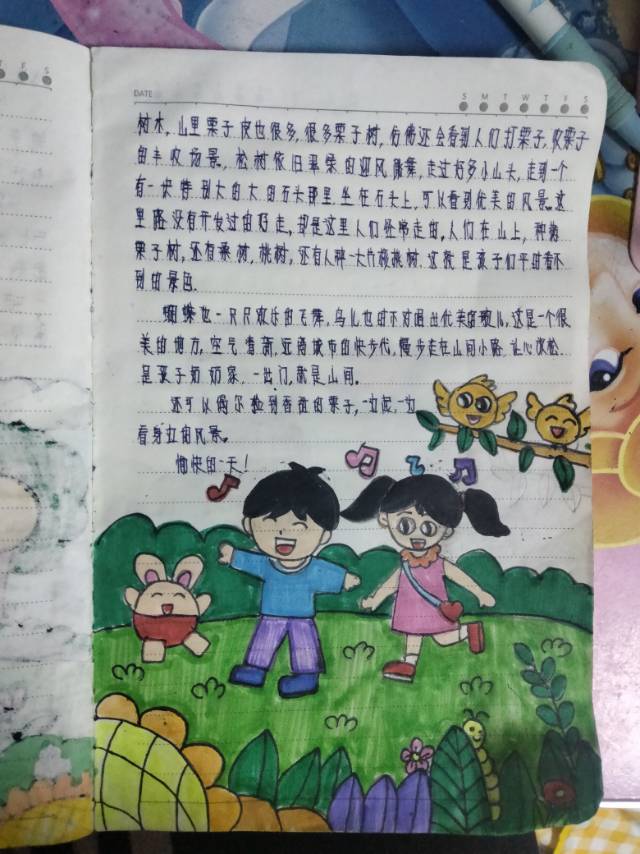 T F S
DATE
S M T W T F S
树木，山里栗子皮也很多，很多栗子树，仿佛还会看到人们打栗子，收栗子
的丰收场景。松树依旧翠绿的迎风飘舞，走过好多小山头，走到一个
有一块特别大的大的石头那里坐在石头上，可以看到优美的风景。这
里路没有开发过的好走，却是这里人们经常走的，人们在山上，种着
栗子树，还有桑树，桃树，还有人种一大片核桃树。这就是孩子们平时看不
到的景色。
蝴蝶也一只只欢乐的飞舞，鸟儿也时不时唱出优美的歌儿。这是一个很
美的地方，空气清新，远离城市的快步代，慢步走在山间小路，让心放松
是孩子奶奶家，一出门，就是山间。
还可以偶尔捡到香甜的栗子，一边吃，一边
看身边的风景。
愉快的一天！